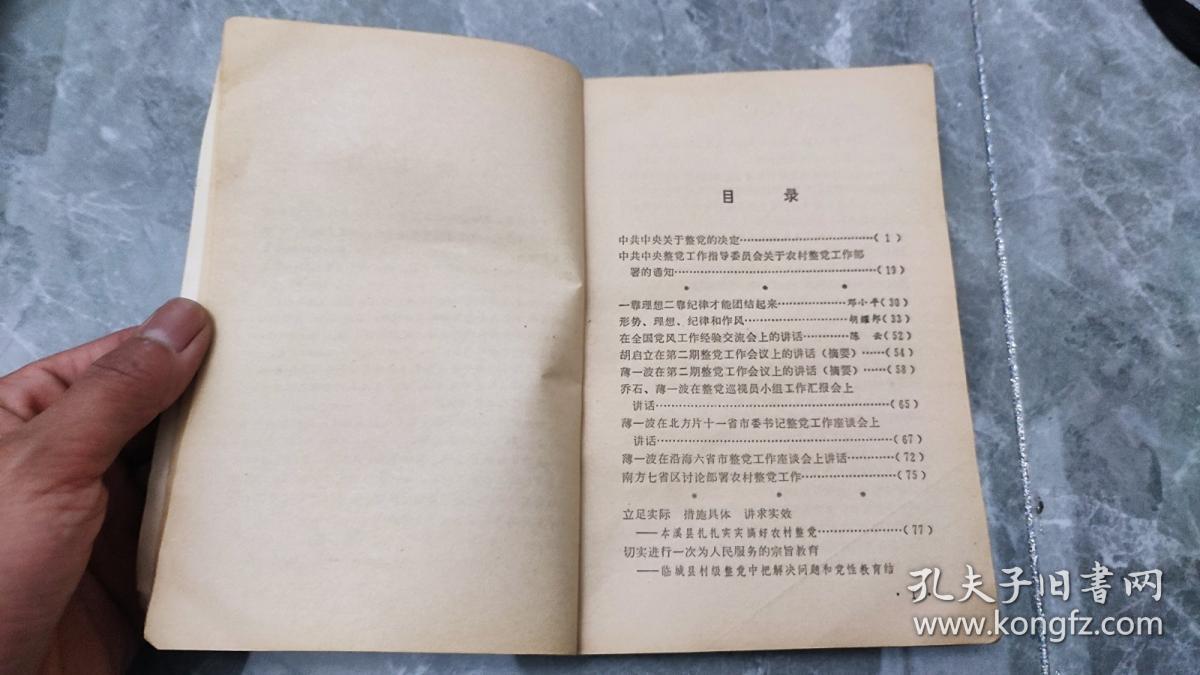 目 录
中共中央关于整党的决定……………………………(1)
中共中央整党工作指导委员会关于农村整党工作部
署的通知……………………………………(19)
* * *
一靠理想二靠纪律才能团结起来……………邓小平(30)
形势、理想、纪律和作风……………………胡耀邦(33)
在全国党风工作经验交流会上的讲话………陈 云(52)
胡启立在第二期整党工作会议上的讲话(摘要)……(54)
薄一波在第二期整党工作会议上的讲话(摘要)……(58)
乔石、薄一波在整党巡视员小组工作汇报会上
讲话…………………………………………………(65)
薄一波在北方片十一省市委书记整党工作座谈会上
讲话…………………………………………………(67)
薄一波在沿海六省市整党工作座谈会上讲话…………(72)
南方七省区讨论部署农村整党工作……………………(75)
* * *
立足实际 措施具体 讲求实效
——本溪县扎扎实实搞好农村整党…………………(77)
切实进行一次为人民服务的宗旨教育
——临城县村级整党中把解决问题和党性教育结
孔夫子旧书网
www.kongfz.com